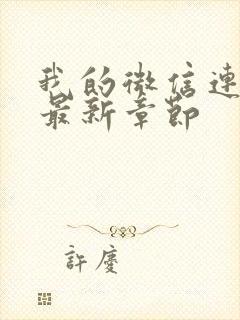 我的微信連
最新章節
許慶